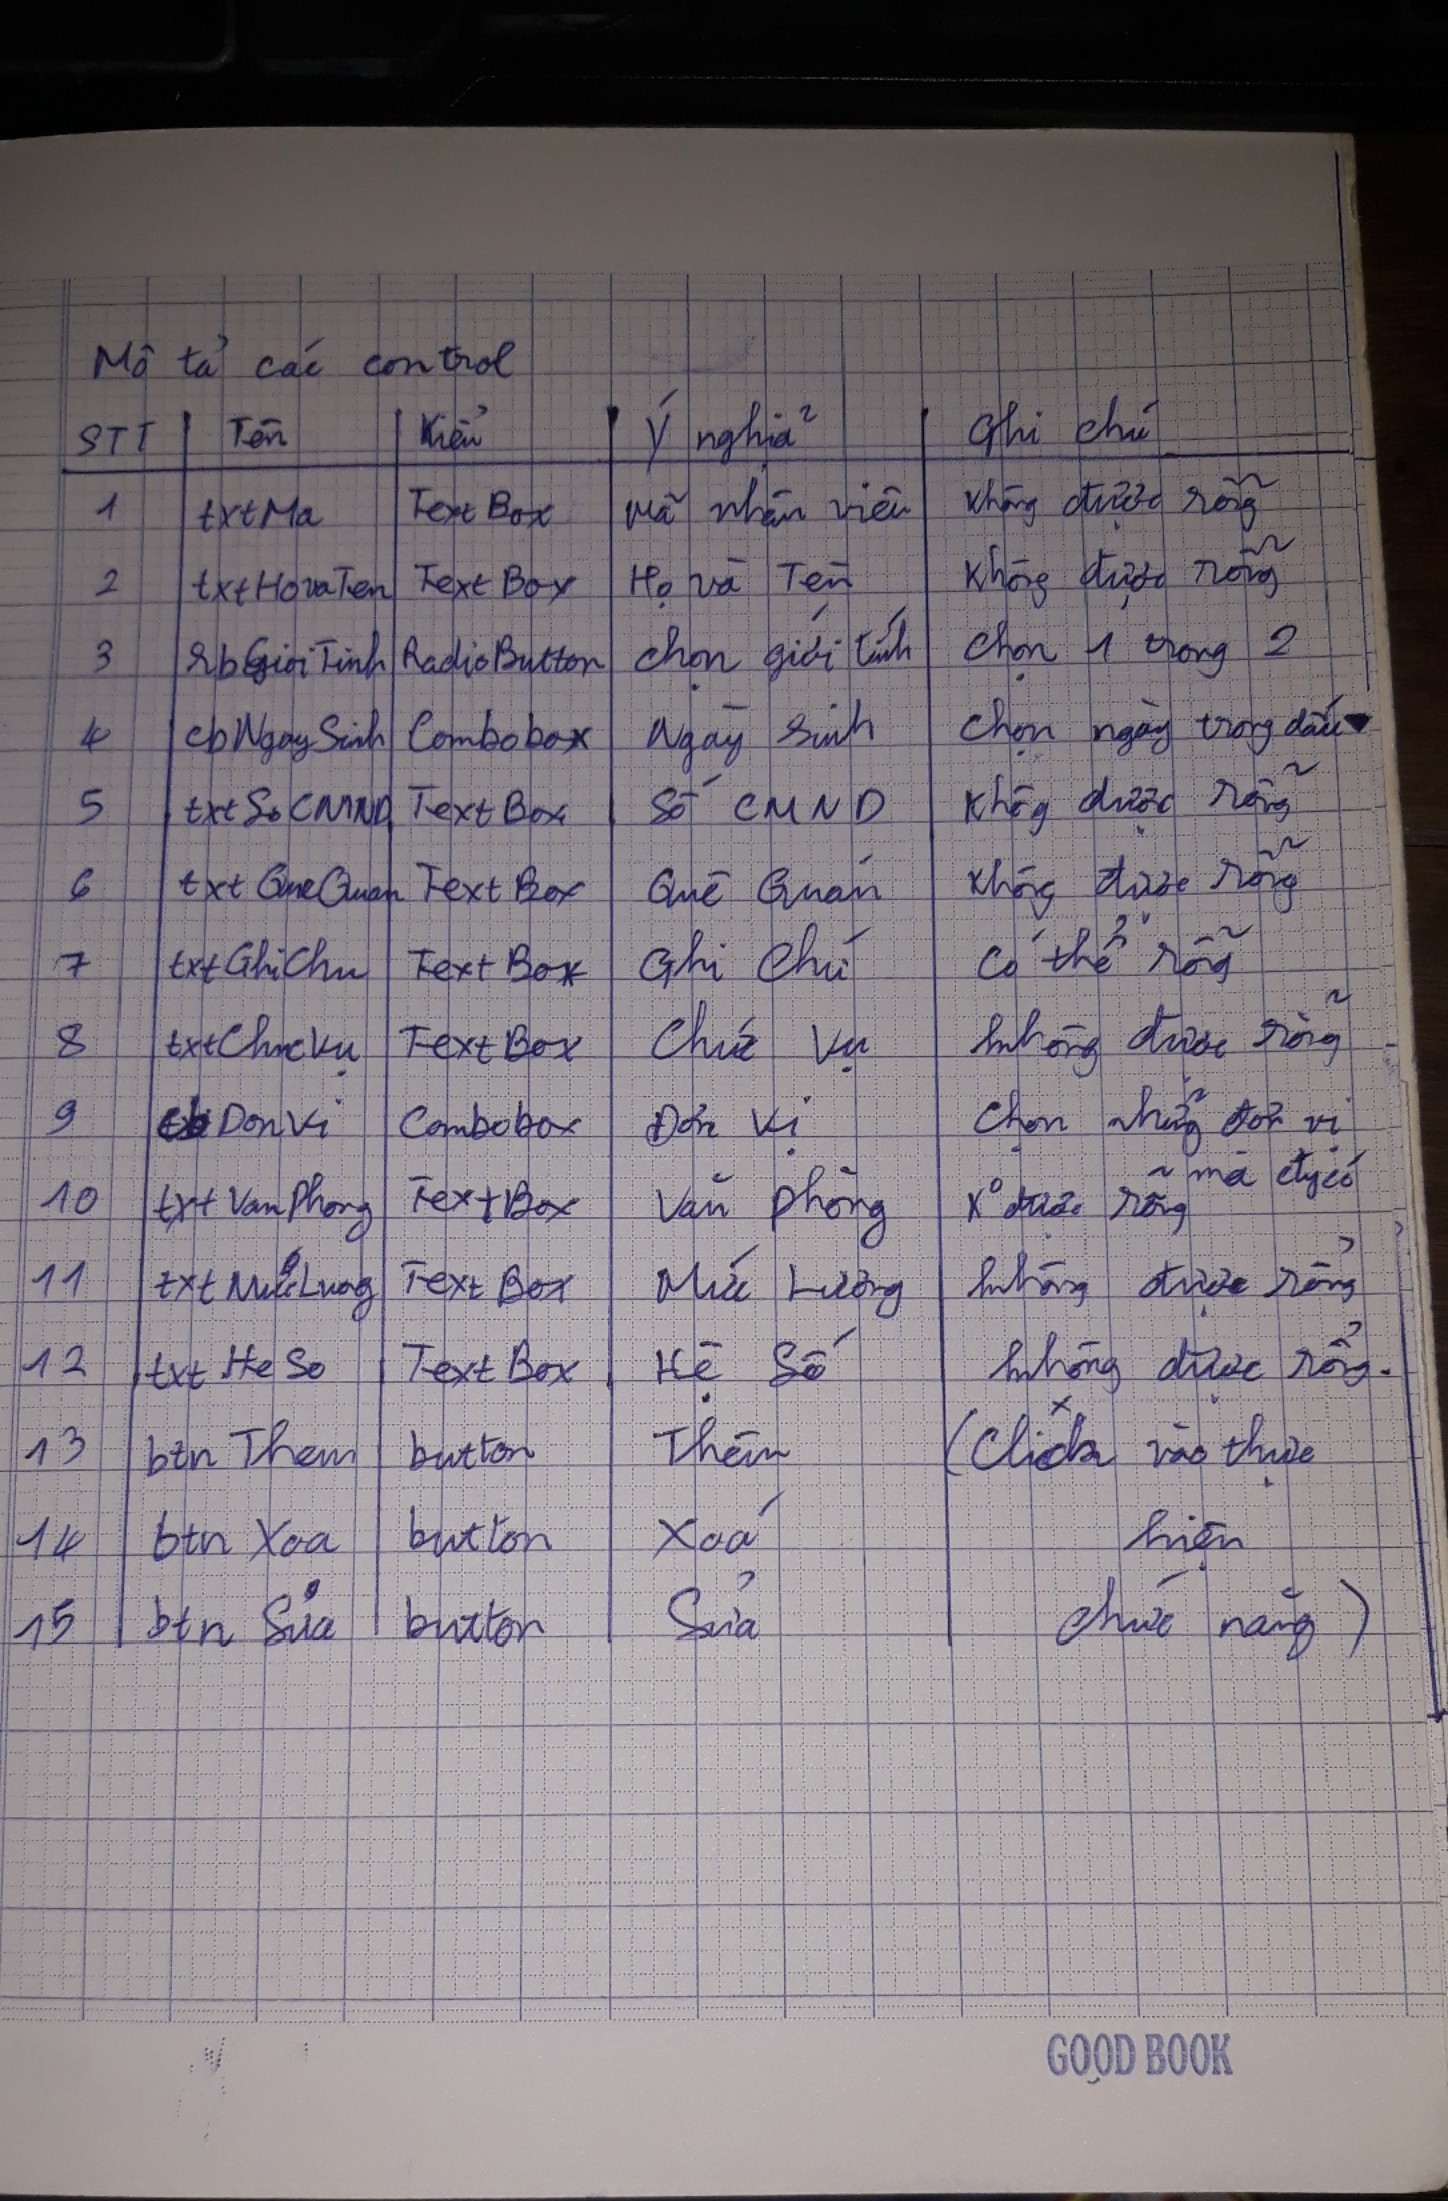 Mô tả các control
STT Tên Kiểu Ý nghĩa Ghi chú
1 txtMa TextBox Mã nhân viên Không được rỗng
2 txtHovaTen TextBox Họ và Tên Không được rỗng
3 rbGioiTinh RadioButton chọn giới tính chọn 1 trong 2
4 cbNgaySinh Combobox Ngày sinh chọn ngày trong dấu ▼
5 txtSoCMND TextBox Số CMND Không được rỗng
6 txtQueQuan TextBox Quê Quán Không được rỗng
7 txtGhiChu TextBox Ghi Chú Có thể rỗng
8 txtChucVụ TextBox Chức Vụ không được rỗng
9 cbDonVi Combobox Đơn Vị Chọn những đơn vị
mà cty có
10 txtVanPhong TextBox Văn phòng K° được rỗng
11 txtMứcLuong TextBox Mức Lương không được rổng
12 txtHeSo TextBox Hệ Số không được rổng.
13 btn Them button Thêm (Click vào thực
14 btn Xoa button Xoá hiện
15 btn Sửa button Sửa chức năng)
GOOD BOOK